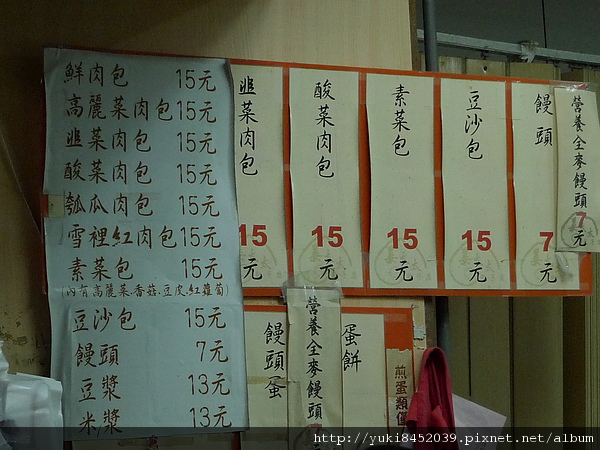 鮮肉包 15元
高麗菜肉包 15元
韮菜肉包 15元
酸菜肉包 15元
瓠瓜肉包 15元
雪裡紅肉包 15元
素菜包 15元
(內有高麗菜.香菇.豆皮.紅蘿蔔)
豆沙包 15元
饅頭 7元
豆漿 13元
米漿 13元
韮菜肉包 15元
酸菜肉包 15元
素菜包 15元
豆沙包 15元
饅頭 7元
營養全麥饅頭 7元
饅頭蛋
營養全麥饅頭 7
蛋餅
煎蛋類
http://yuki8452039.pixnet.net/album